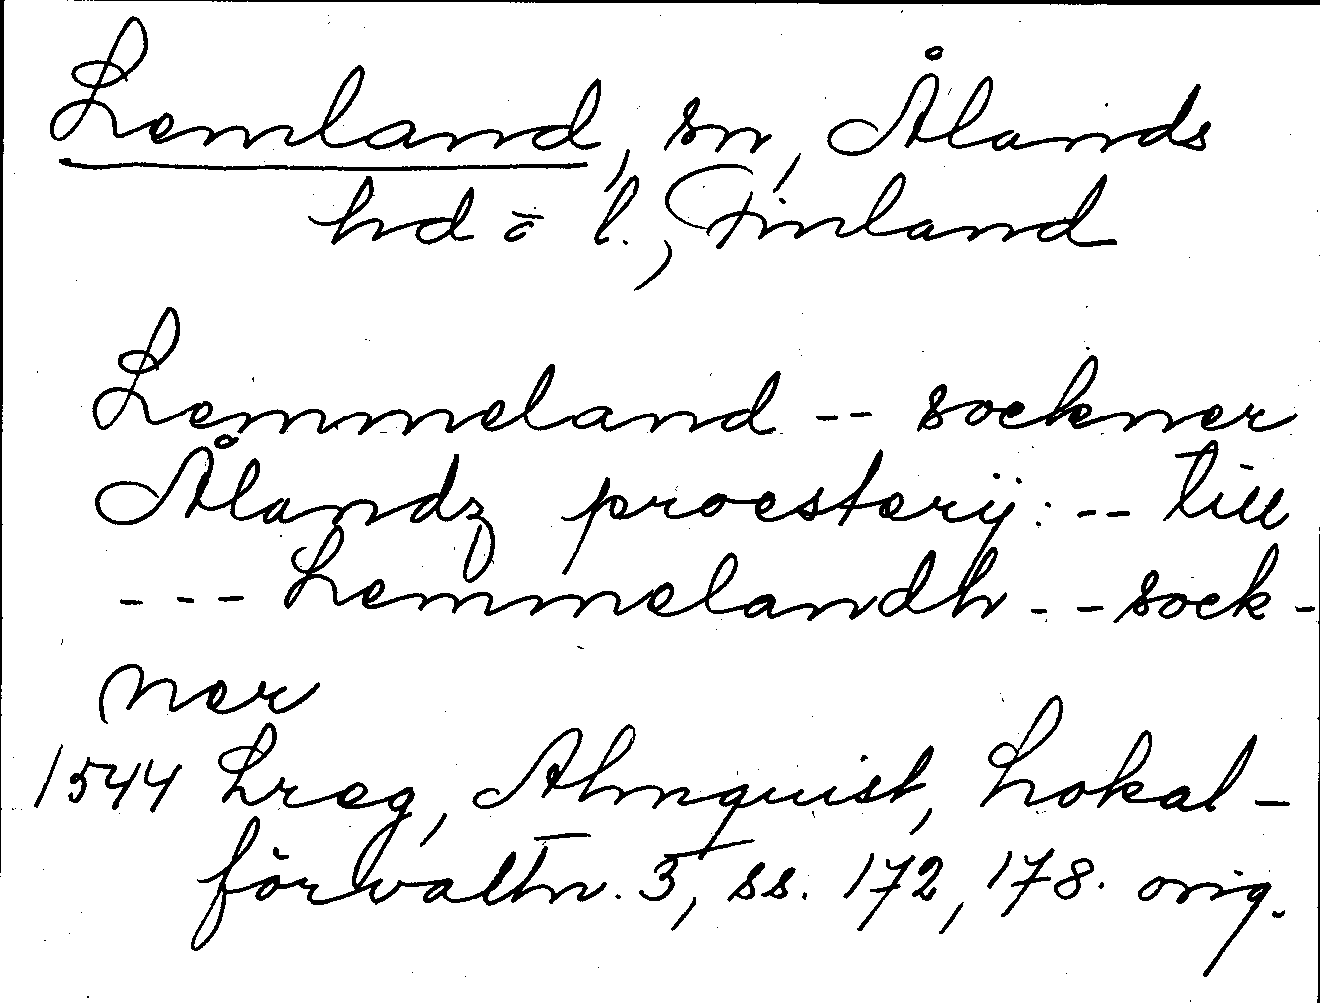 Lemland, sn, Ålands
hd o l., Finland
Lemmeland -- sockner
Ålandz proesterij: -- till
--- Lemmelandh -- sock-
ner
1544 Lreg, Almquist, Lokal-
förvaltn. 3, ss. 172, 178. orig.